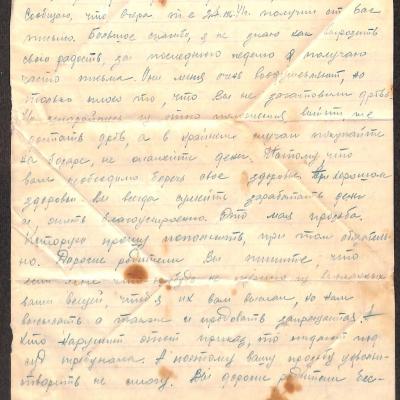 Сообщаю, что вчера т.е 24.IX. получил от Вас
письмо. Большое спасибо, я не знаю как выразить
свою радость, за последнюю неделю я получаю
часто письма. Они меня очень воодушевляют, но
только плохо то, что Вы не заготовили дров.
из этого положения выйти и
достать дров, а в крайнем случаи покупайте
на базаре, не жалейте денег. Потому что
вам необходимо беречь свое здоровье. При хорошом
здоровьи вы всегда сумеите заработать денег
и жить благоустроенно. Это моя просьба.
Которую прошу исполнить, при том обязатель-
но. Дорогие родители Вы пишите, что
если
ваши вещей, чтоб я их вам выслал, но нам
высылать а также и пробовать запрещается. А
кто нарушит этот приказ, то отдают под
суд трибунала. А поэтому вашу просьбу удовле-
творить не смогу. Вы дорогие родители бес-